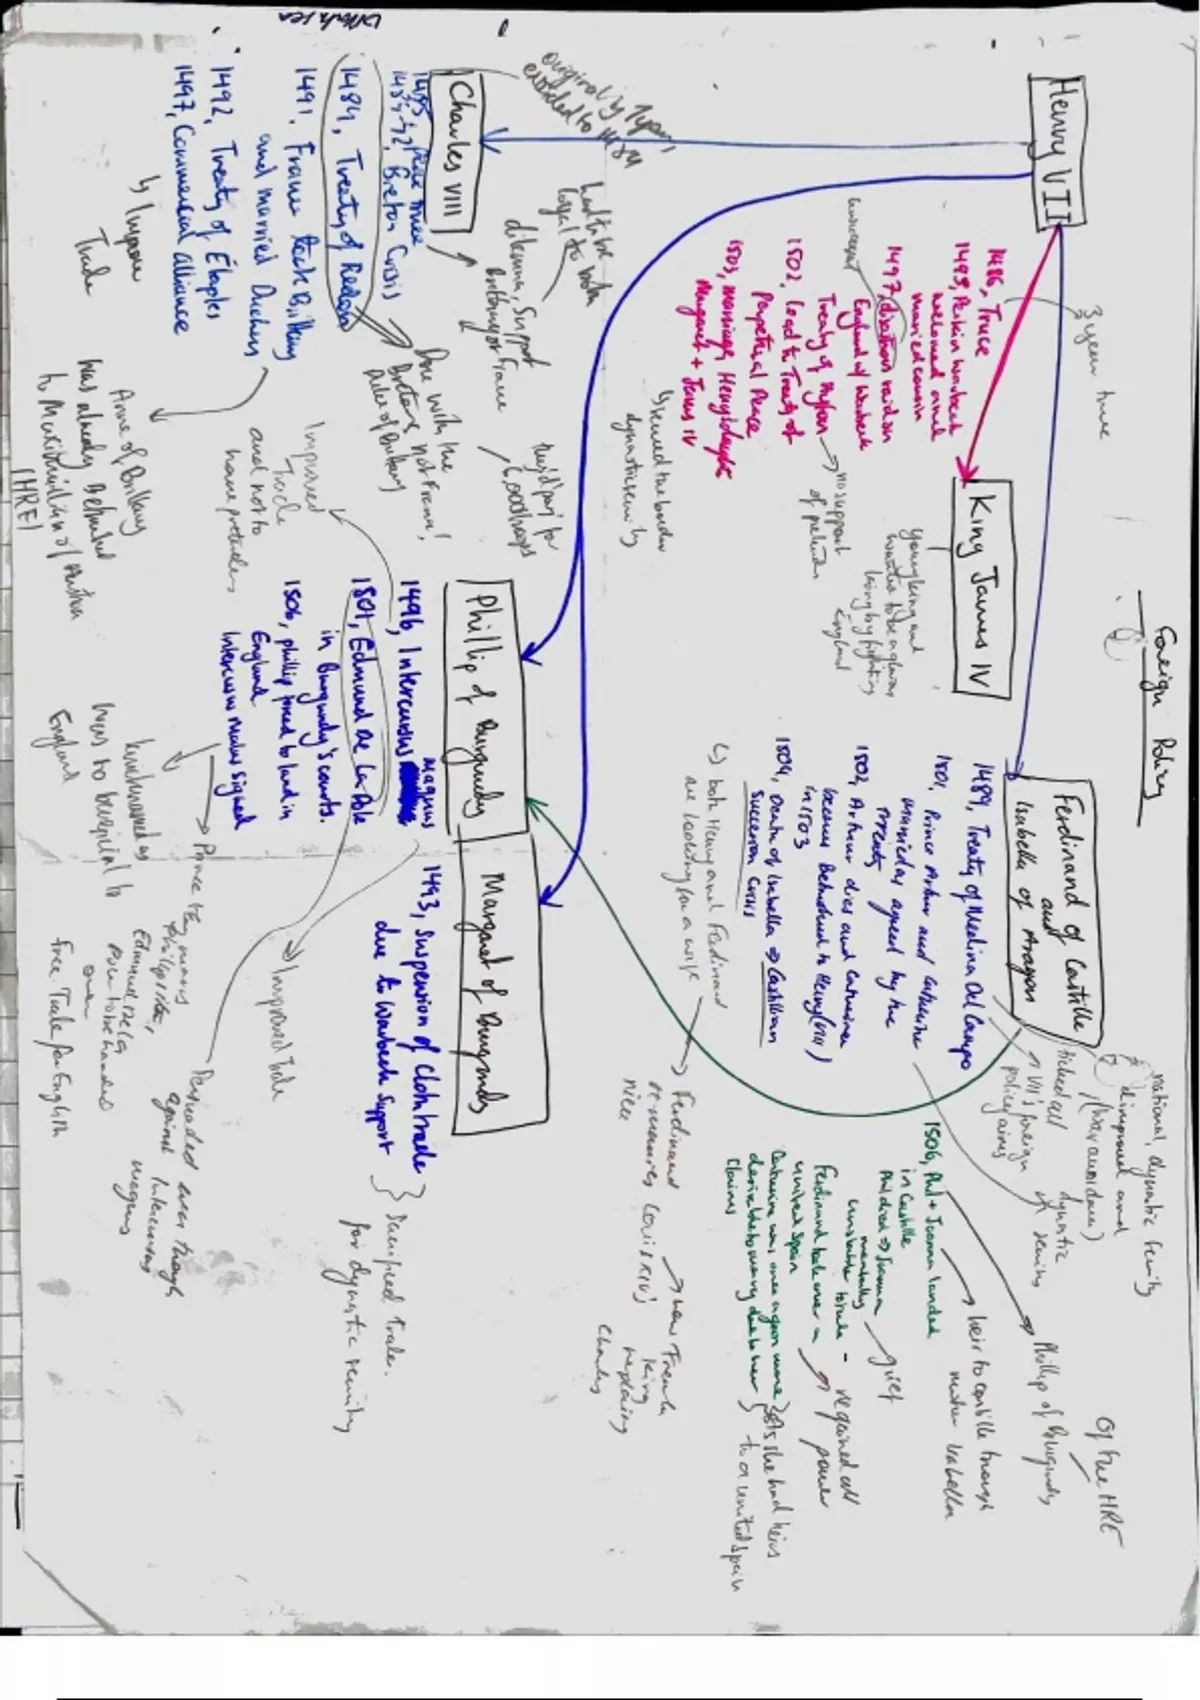 Foreign Policy
Henry VII
3 year truce
1486, Truce
1495, Perkin Warbeck
welcomed and
married cousin
1497, disastrous raid on
England w/ Warbeck
Treaty of Ayton
1502, lead to Treaty of
Perpetual Peace
1503, marriage Henry's daughter
Margaret + James IV
↳ secured the border
dynastic security
→ no support
of pretender
King James IV
young king and
wanted to be a glorious
king by fighting
England
Charles VIII
originally 1 year,
extended to 1489
had to be
loyal to both
dilemma, support
Brittany or France
1485, Peace truce
1487-92, Breton Crisis
1489, Treaty of Redon
1491, France took Brittany
and married Duchess
1492, Treaty of Étaples
1497, Commercial alliance
↳ Improve
Trade
Done with the
Bretons, not France!
Duke of Brittany
they'd pay for
6,000 troops
Anne of Brittany
was already betrothed
to Maximilian of Austria
(HRE)
Ferdinand of Castille
and
Isabella of Aragon
1489, Treaty of Medina Del Campo
1501, Prince Arthur and Catherine
married as agreed by the
treaty
1502, Arthur dies and Catherine
becomes Betrothed to Henry (VIII)
in 1503
1504, Death of Isabella ⇒ Castilian
Succession Crisis
↳ both Henry and Ferdinand
are looking for a wife
→ Ferdinand
re-marries Louis XII's
niece
→ new French
king
replacing
Charles
national, dynastic security
improved and
(war avoidance)
dynastic
security
ticked all
VII's foreign
policy aims
1506, Phil + Juana landed
in Castille
Phil died ⇒ Juana
mentally
unstable
→ grief
Ferdinand took over a
united Spain
→ regained all
power
Catherine was once again more
desirable to marry due to her
claims
} as she had heirs
to a united Spain
→ heir to castille through
mother Isabella
→ Phillip of Burgundy
of the HRE
Phillip of Burgundy
1496, Intercursus magnus
1501, Edmund de la Pole
in Burgundy's courts.
1506, phillip forced to land in
England
Intercursus Malus signed
Improved
Trade
and not to
harbour pretenders
Margaret of Burgundy
1493, Suspension of Cloth trade
due to Warbeck support
} Sacrificed trade.
for dynastic security
→ Improved Trade
Edmund De La
Pole to be handed
over
Persuaded over though
against Intercursus
magnus
was to beneficial to
England
free Trade for English